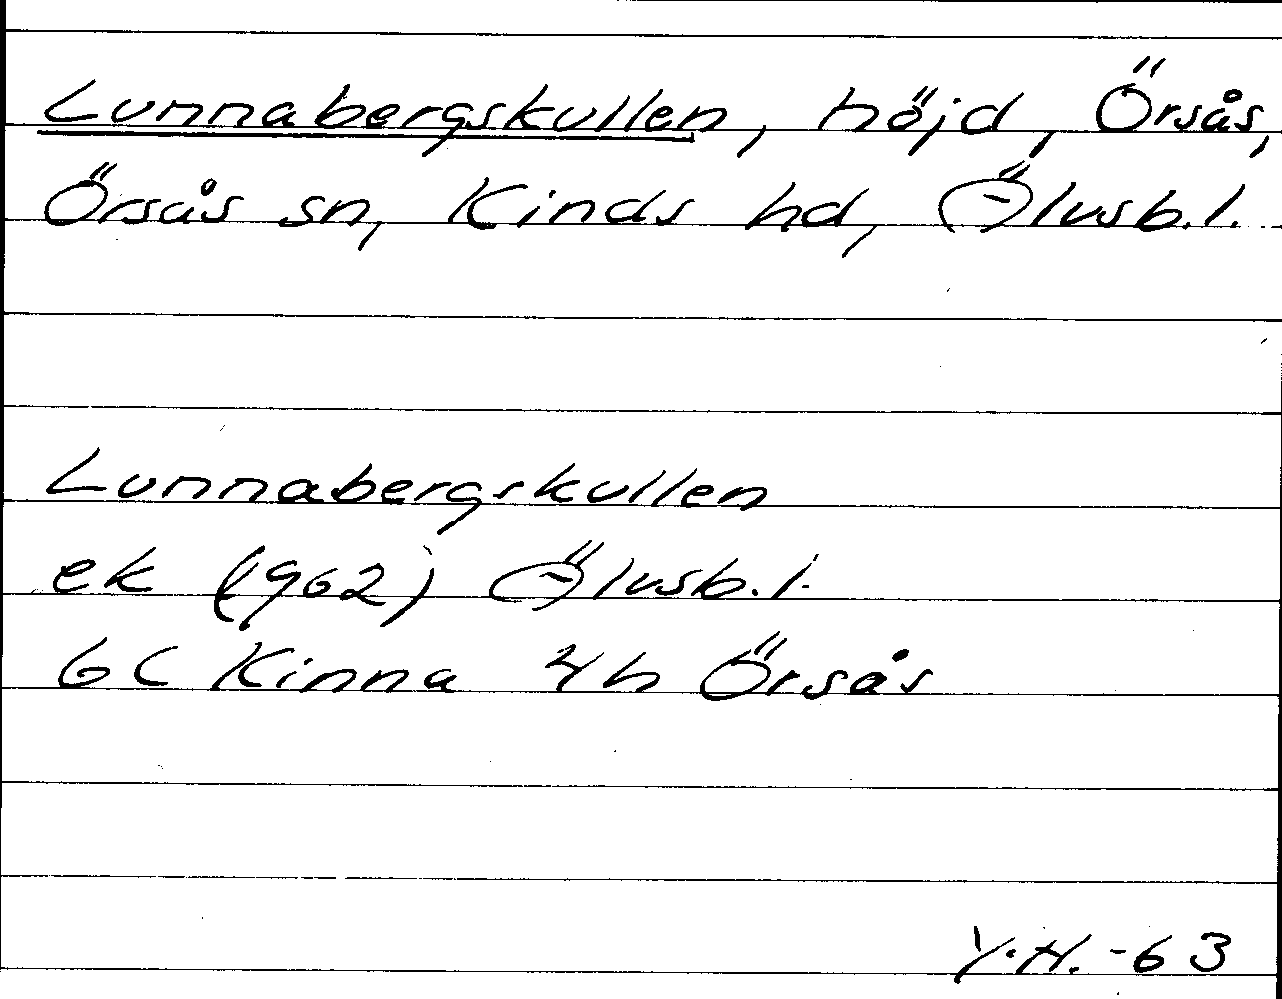 Lunnabergskullen, höjd, Örsås,
Örsås sn, Kinds hd, Älvsb.l.
Lunnabergskullen
ek (1962) Älvsb.l.
6C Kinna 4h Örsås
Y.H. -63